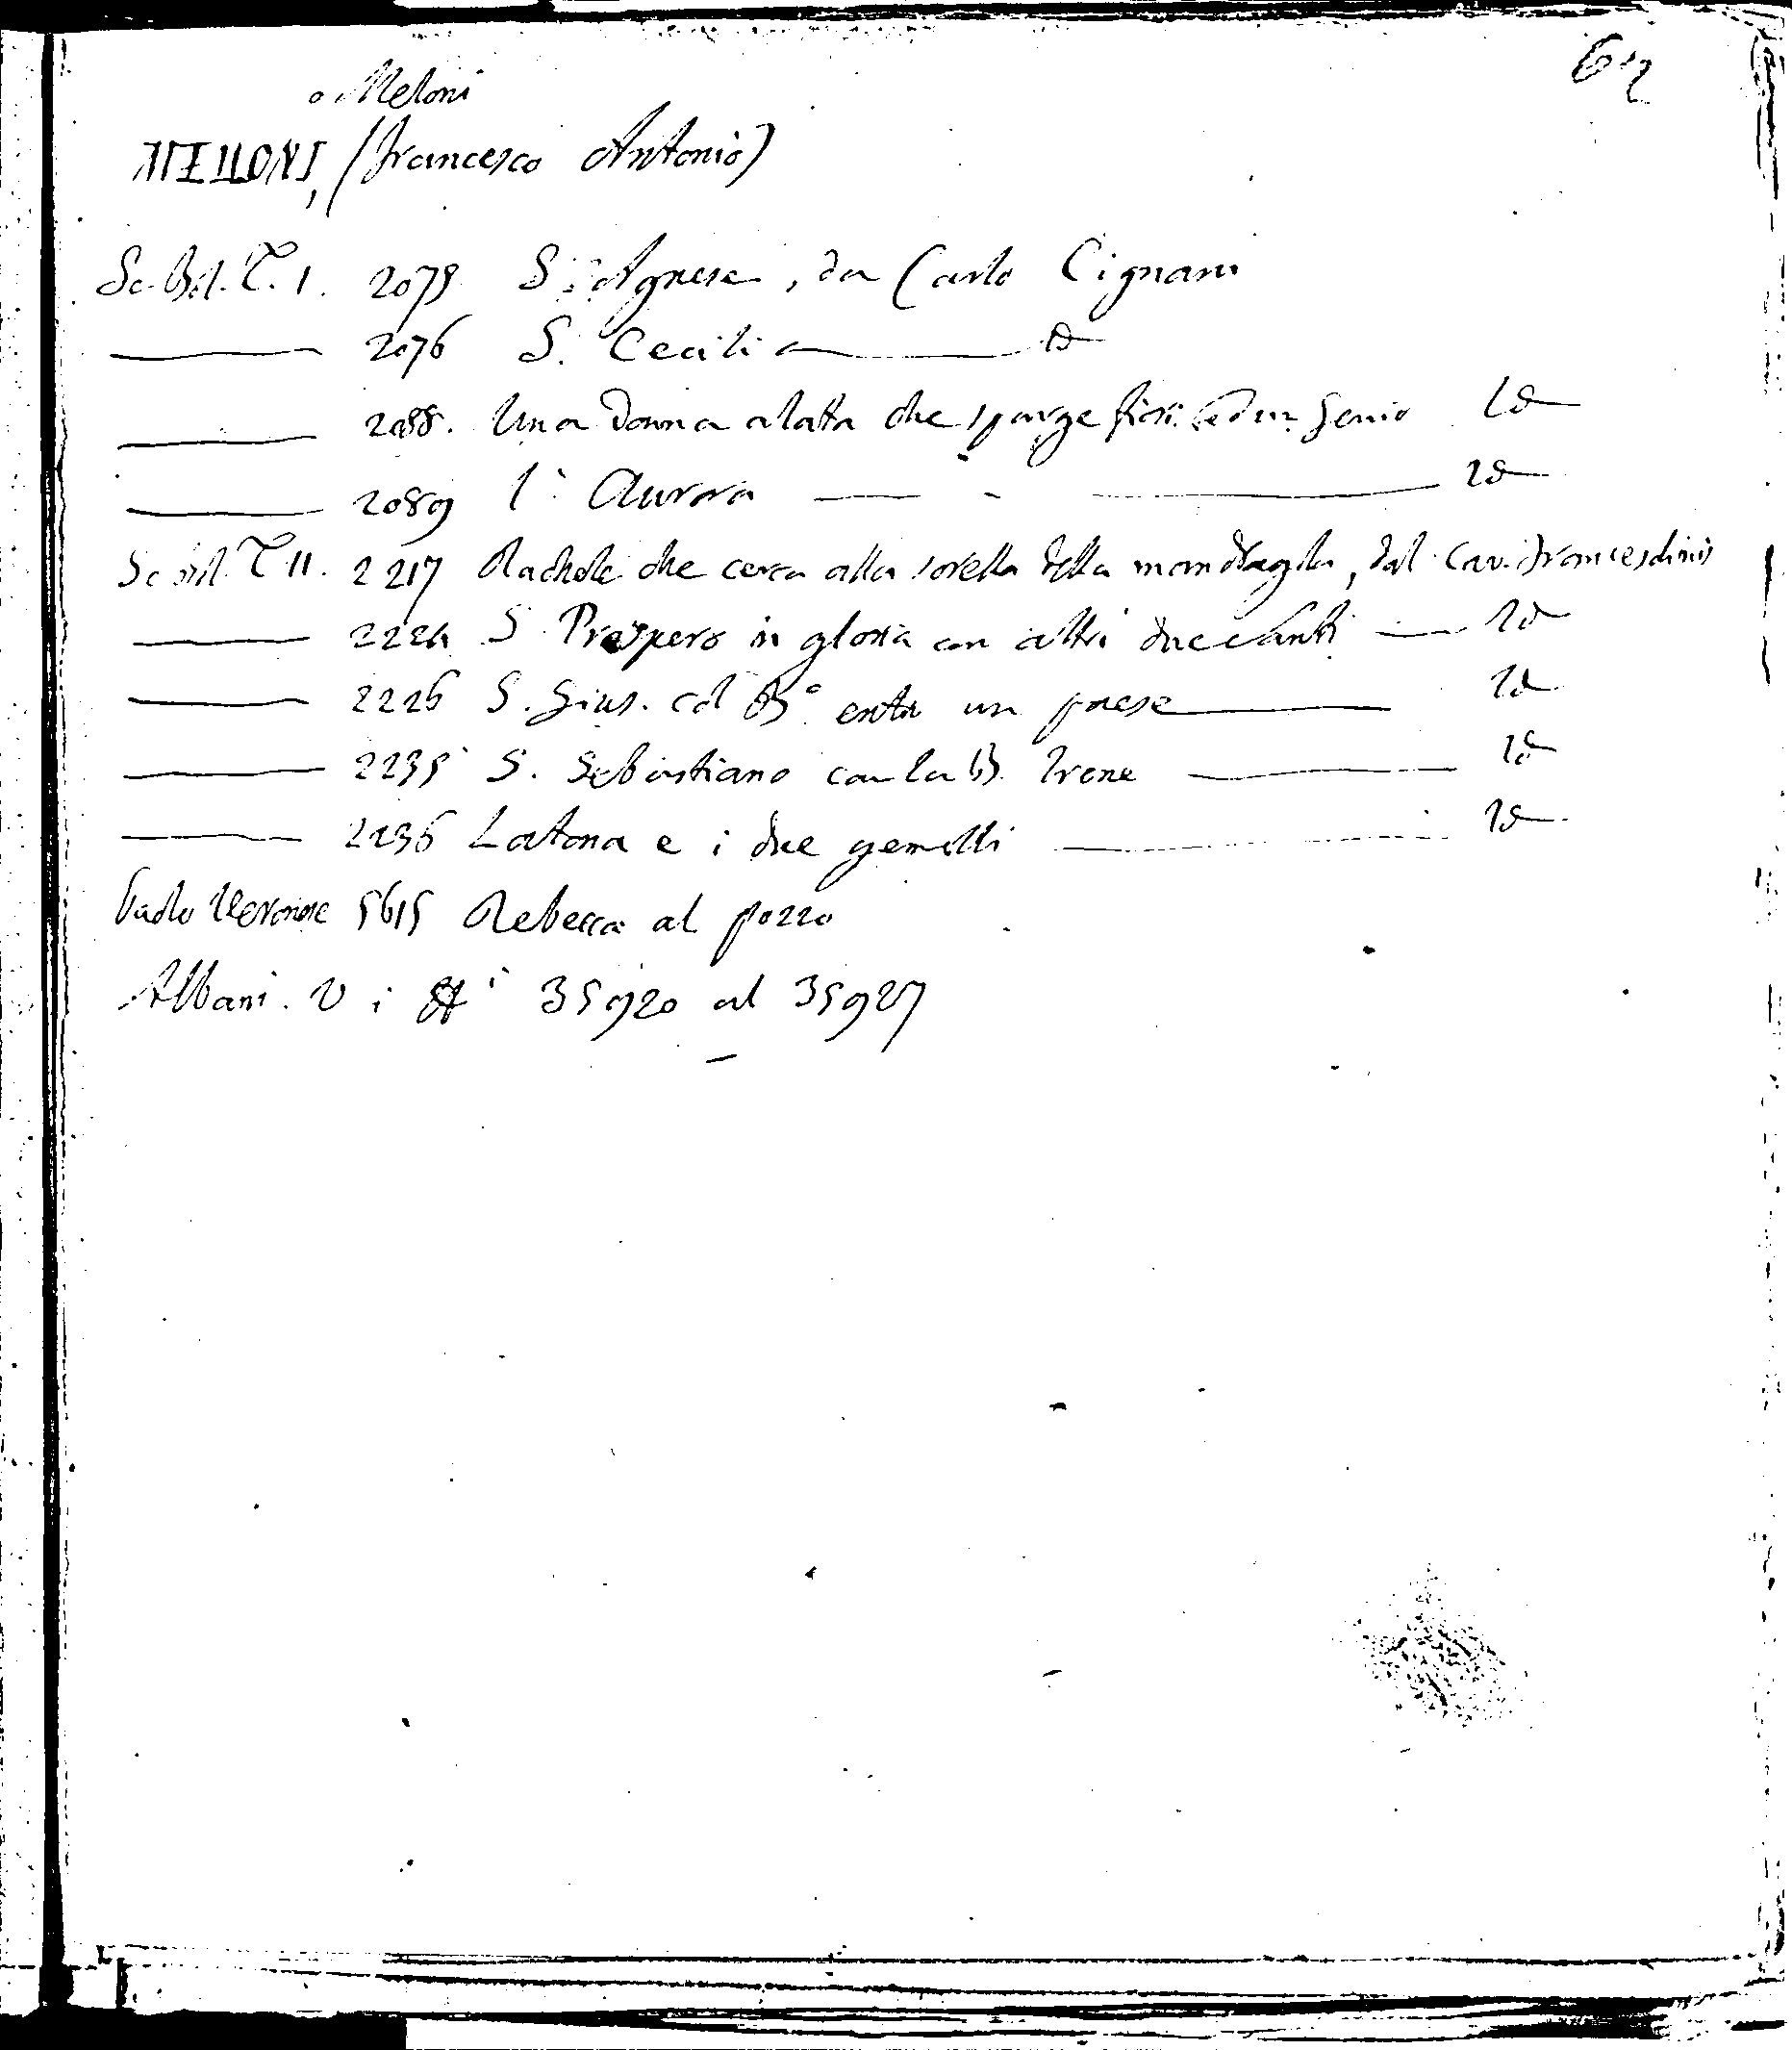 62
o Meloni
MELLONI, (Francesco Antonio)
Sc. Bol. T. I. 2075 S. Agnese, da Carlo Cignani
2076 S. Cecilia Id
2088. Una donna alata che sparge fiori ed un Genio Id
2089 L'Aurora Id
Sc. Bol. T. II. 2217 Rachele che cerca alla sorella della mandragola, dal Cav. Franceschini
2224 S. Prospero in gloria con altri due santi Id
2226 S. Gius. col Bo. entro un paese Id
2235 S. Sebastiano con la B. Irene Id
2236 Latona e i due gemelli Id
Paolo Veronese 5615 Rebecca al pozzo
Albani. V i 35920 al 35927